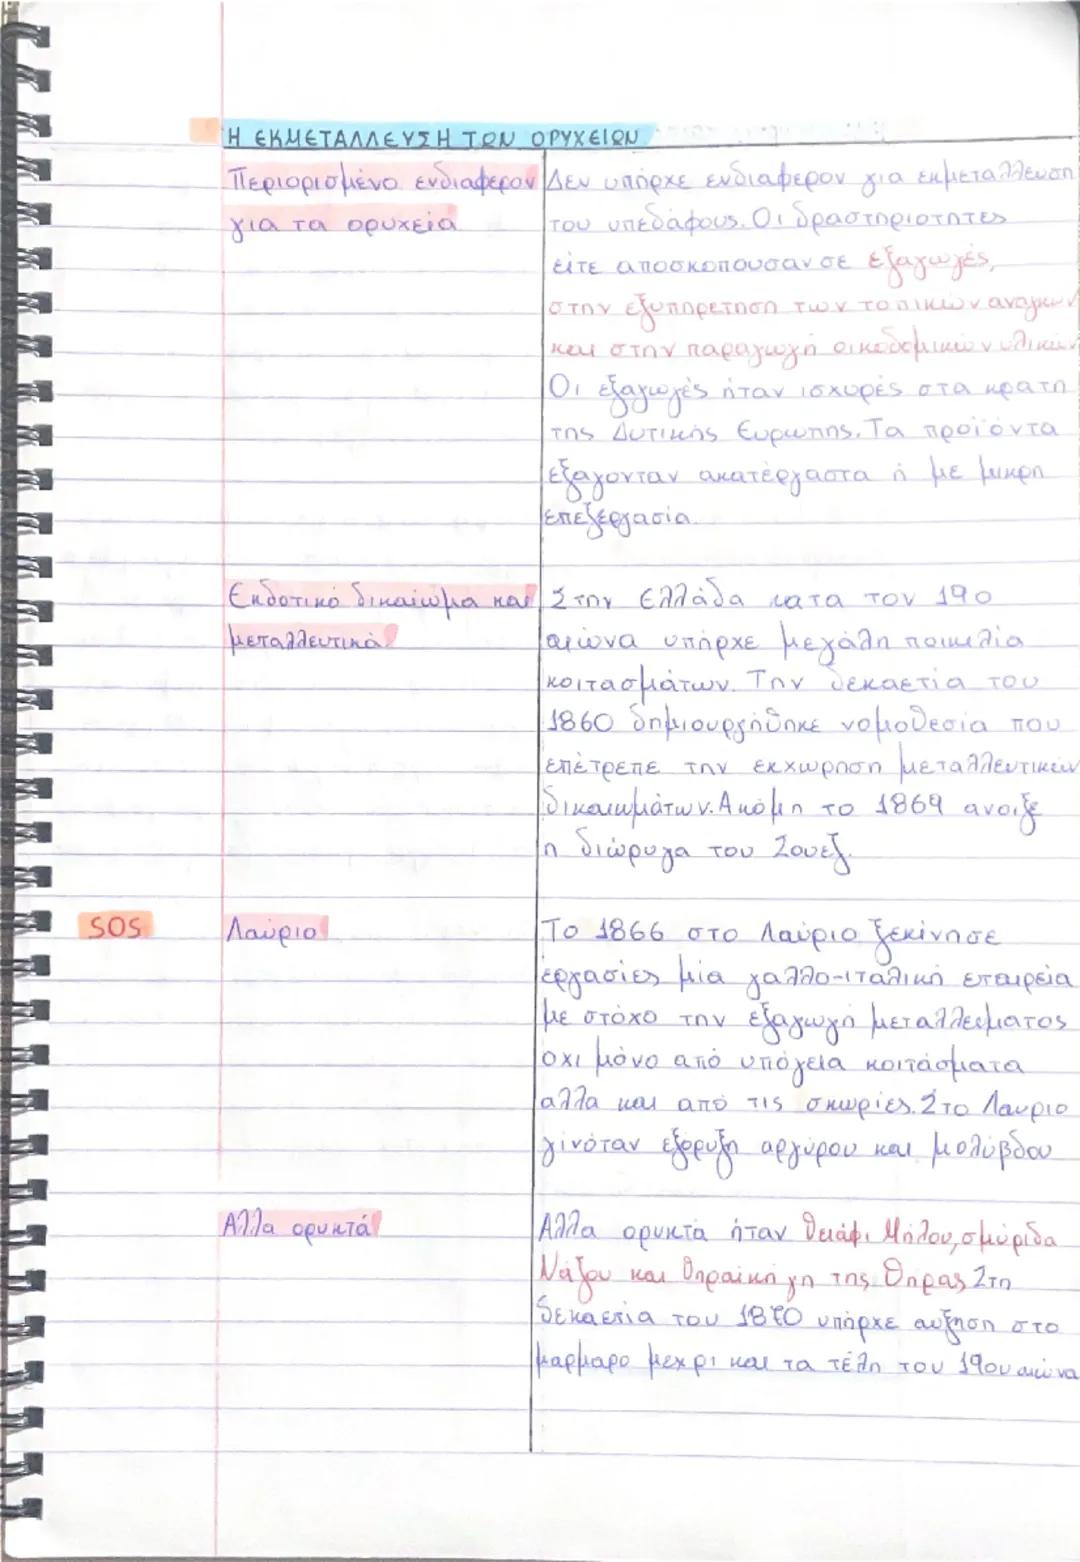 Η ΕΚΜΕΤΑΛΛΕΥΣΗ ΤΩΝ ΟΡΥΧΕΙΩΝ
Περιορισμένο ενδιαφερον
για τα ορυχεία
Δεν υπήρχε ενδιαφερον για εκμετάλλευση
του υπεδάφους. Οι δραστηριοτητες
είτε αποσκοπουσαν σε εξαγωγές,
στην εξυπηρετηση των τοπικών αναγκων
και στην παραγωγή οικοδομικών υλικών
Οι εξαγωγές ήταν ισχυρές στα κρατη
της Δυτικής Ευρωπης. Τα προϊόντα
εξαγονταν ακατέργαστα ή με μικρη
επεξεργασία.
Εκδοτικό δικαίωμα και
μεταλλευτικά
Στην Ελλάδα κατα τον 19ο
αιώνα υπήρχε μεγάλη ποικιλία
κοιτασμάτων. Την δεκαετία του
1860 δημιουργήθηκε νομοθεσία που
επέτρεπε την εκχωρηση μεταλλευτικών
δικαιωμάτων. Ακόμη το 1869 ανοιξε
η διώρυγα του Σουεζ.
SOS
Λαύριο
Το 1866 στο Λαύριο ξεκίνησε
εργασίες μία γαλλο-ιταλική εταιρεία
με στόχο την εξαγωγή μεταλλευματος
οχι μόνο από υπόγεια κοιτάσματα
αλλα και από τις σκωρίες. Στο Λαυριο
γίνόταν εξόρυξη αργύρου και μολύβδου
Αλλα ορυκτά
Αλλα ορυκτά ήταν θειάφι Μήλου, σμύριδα
Νάξου και θηραική γη της Θηρας Στη
δεκαετία του 1870 υπήρχε αυξηση στο
μαρμαρο μεχρι και τα τέλη του 19ου αιώνα